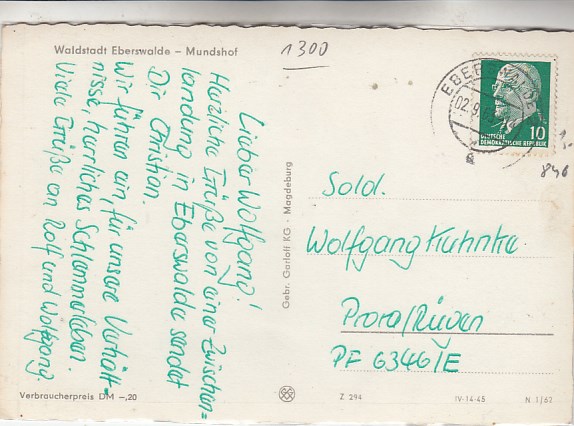 Waldstadt Eberswalde – Mundshof
1300
Lieber Wolfgang!
Herzliche Grüße von einer Zwischen=
landung in Eberswalde sendet
Dir Christian.
Wir führen ein, für unsere Verhält-
nisse, herrliches Schlemmerleben.
Viele Grüße an Rolf und Wolfgang.
Verbraucherpreis DM –,20
Gebr. Garloff KG · Magdeburg
EBERSWALDE
02.9.
a
10
DEUTSCHE
DEMOKRATISCHE REPUBLIK
1.-
846
Sold.
Wolfgang Kuhnke
Prora/Rügen
PF 6346/E
Z 294
IV-14-45
N 1/62